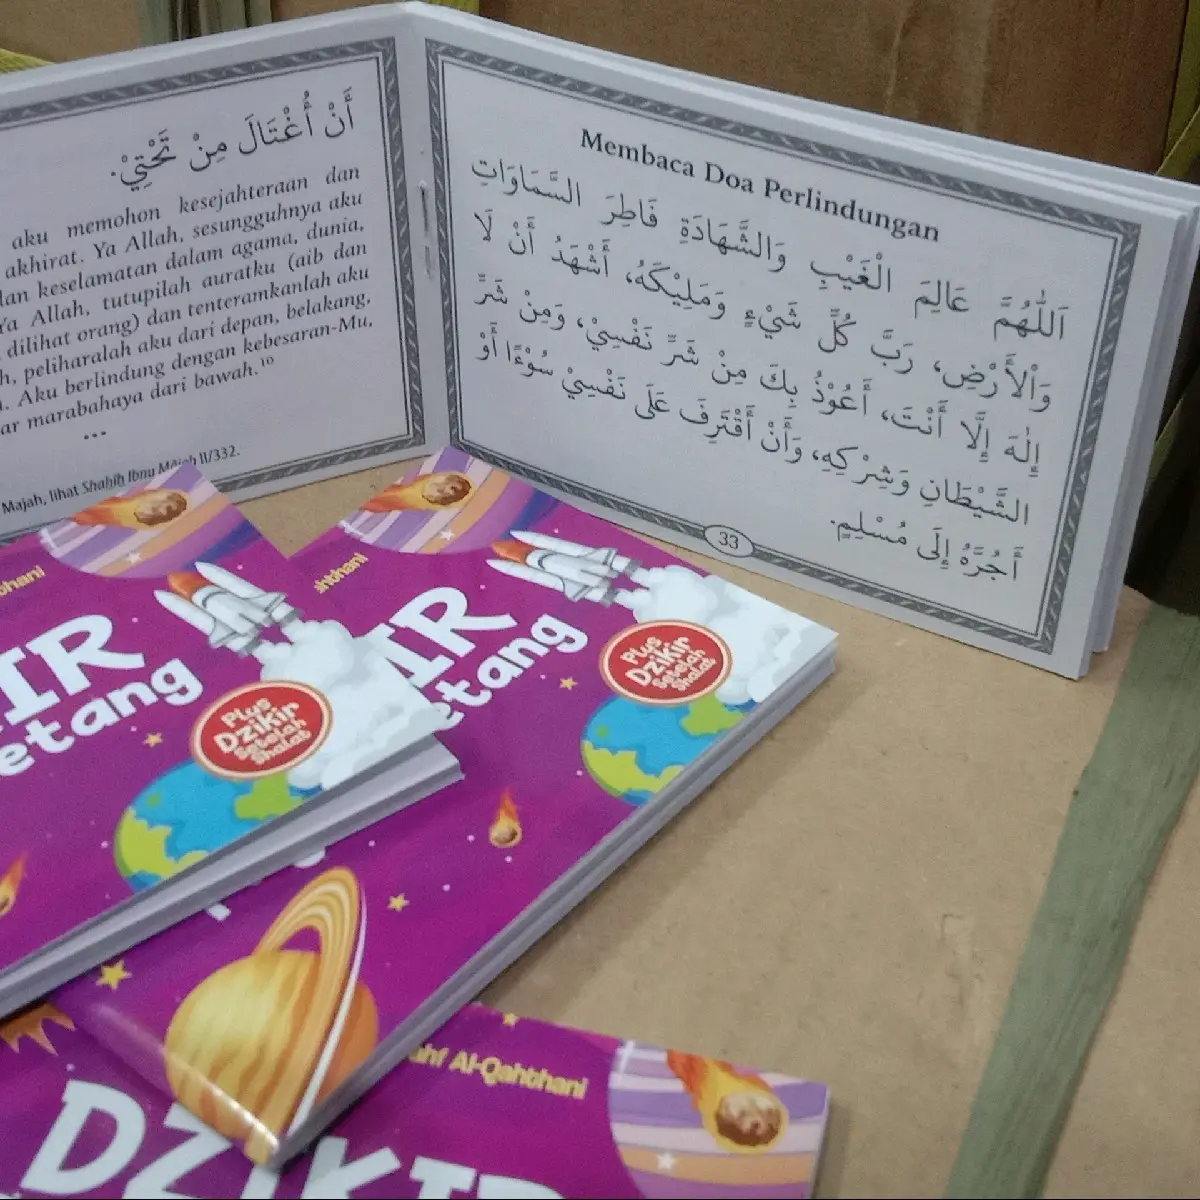 أَنْ أُغْتَالَ مِنْ تَحْتِيْ.
aku memohon kesejahteraan dan
akhirat. Ya Allah, sesungguhnya aku
dan keselamatan dalam agama, dunia,
Ya Allah, tutupilah auratku (aib dan
dilihat orang) dan tenteramkanlah aku
peliharalah aku dari depan, belakang,
Aku berlindung dengan kebesaran-Mu,
marabahaya dari bawah.¹⁰
...
Majah, lihat Shahih Ibnu Majah II/332.
Membaca Doa Perlindungan
اَللّٰهُمَّ عَالِمَ الْغَيْبِ وَالشَّهَادَةِ فَاطِرَ السَّمَاوَاتِ
وَاْلأَرْضِ، رَبَّ كُلِّ شَيْءٍ وَمَلِيْكَهُ، أَشْهَدُ أَنْ لَا
إِلٰهَ إِلَّا أَنْتَ، أَعُوْذُ بِكَ مِنْ شَرِّ نَفْسِيْ، وَمِنْ شَرِّ
الشَّيْطَانِ وَشِرْكِهِ، وَأَنْ أَقْتَرِفَ عَلَى نَفْسِيْ سُوْءًا أَوْ
أَجُرَّهُ إِلَى مُسْلِمٍ.
33
Plus
Dzikir
Setelah
Shalat
Plus
Dzikir
Setelah
Shalat
Al-Qahthani
DZIKIR